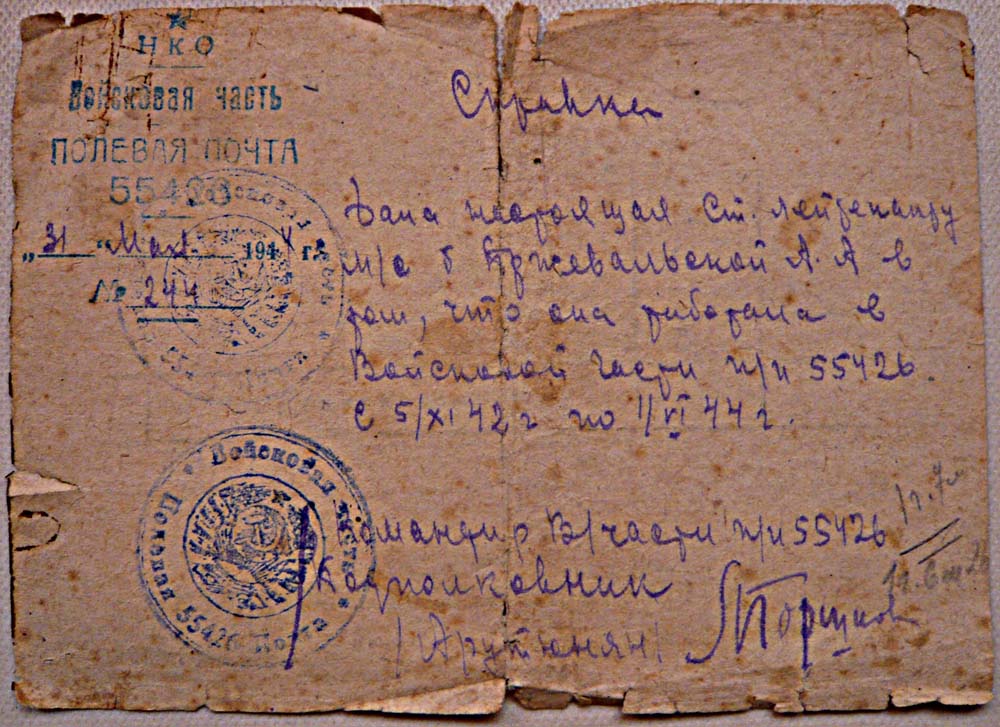 НКО
Войсковая часть
ПОЛЕВАЯ ПОЧТА
55426
„31“ Мая 194 г.
№ 244
Справка
Дана настоящая Ст. лейтенанту
м/с Пржевальской А. А в
том, что она работала в
Войсковой части п/п 55426.
С 5/XI 42 г по 1/VI 44 г.
Войсковая часть
Полевая Почта 55426
Командир В/части п/п 55426
Подполковник
/Арутюнян/